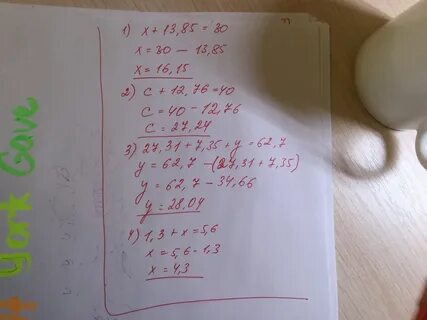 1) x + 13,85 = 30
x = 30 - 13,85
x = 16,15
2) c + 12,76 = 40
c = 40 - 12,76
c = 27,24
3) 27,31 + 7,35 + y = 62,7
y = 62,7 - (27,31 + 7,35)
y = 62,7 - 34,66
y = 28,04
4) 1,3 + x = 5,6
x = 5,6 - 1,3
x = 4,3
York Gave